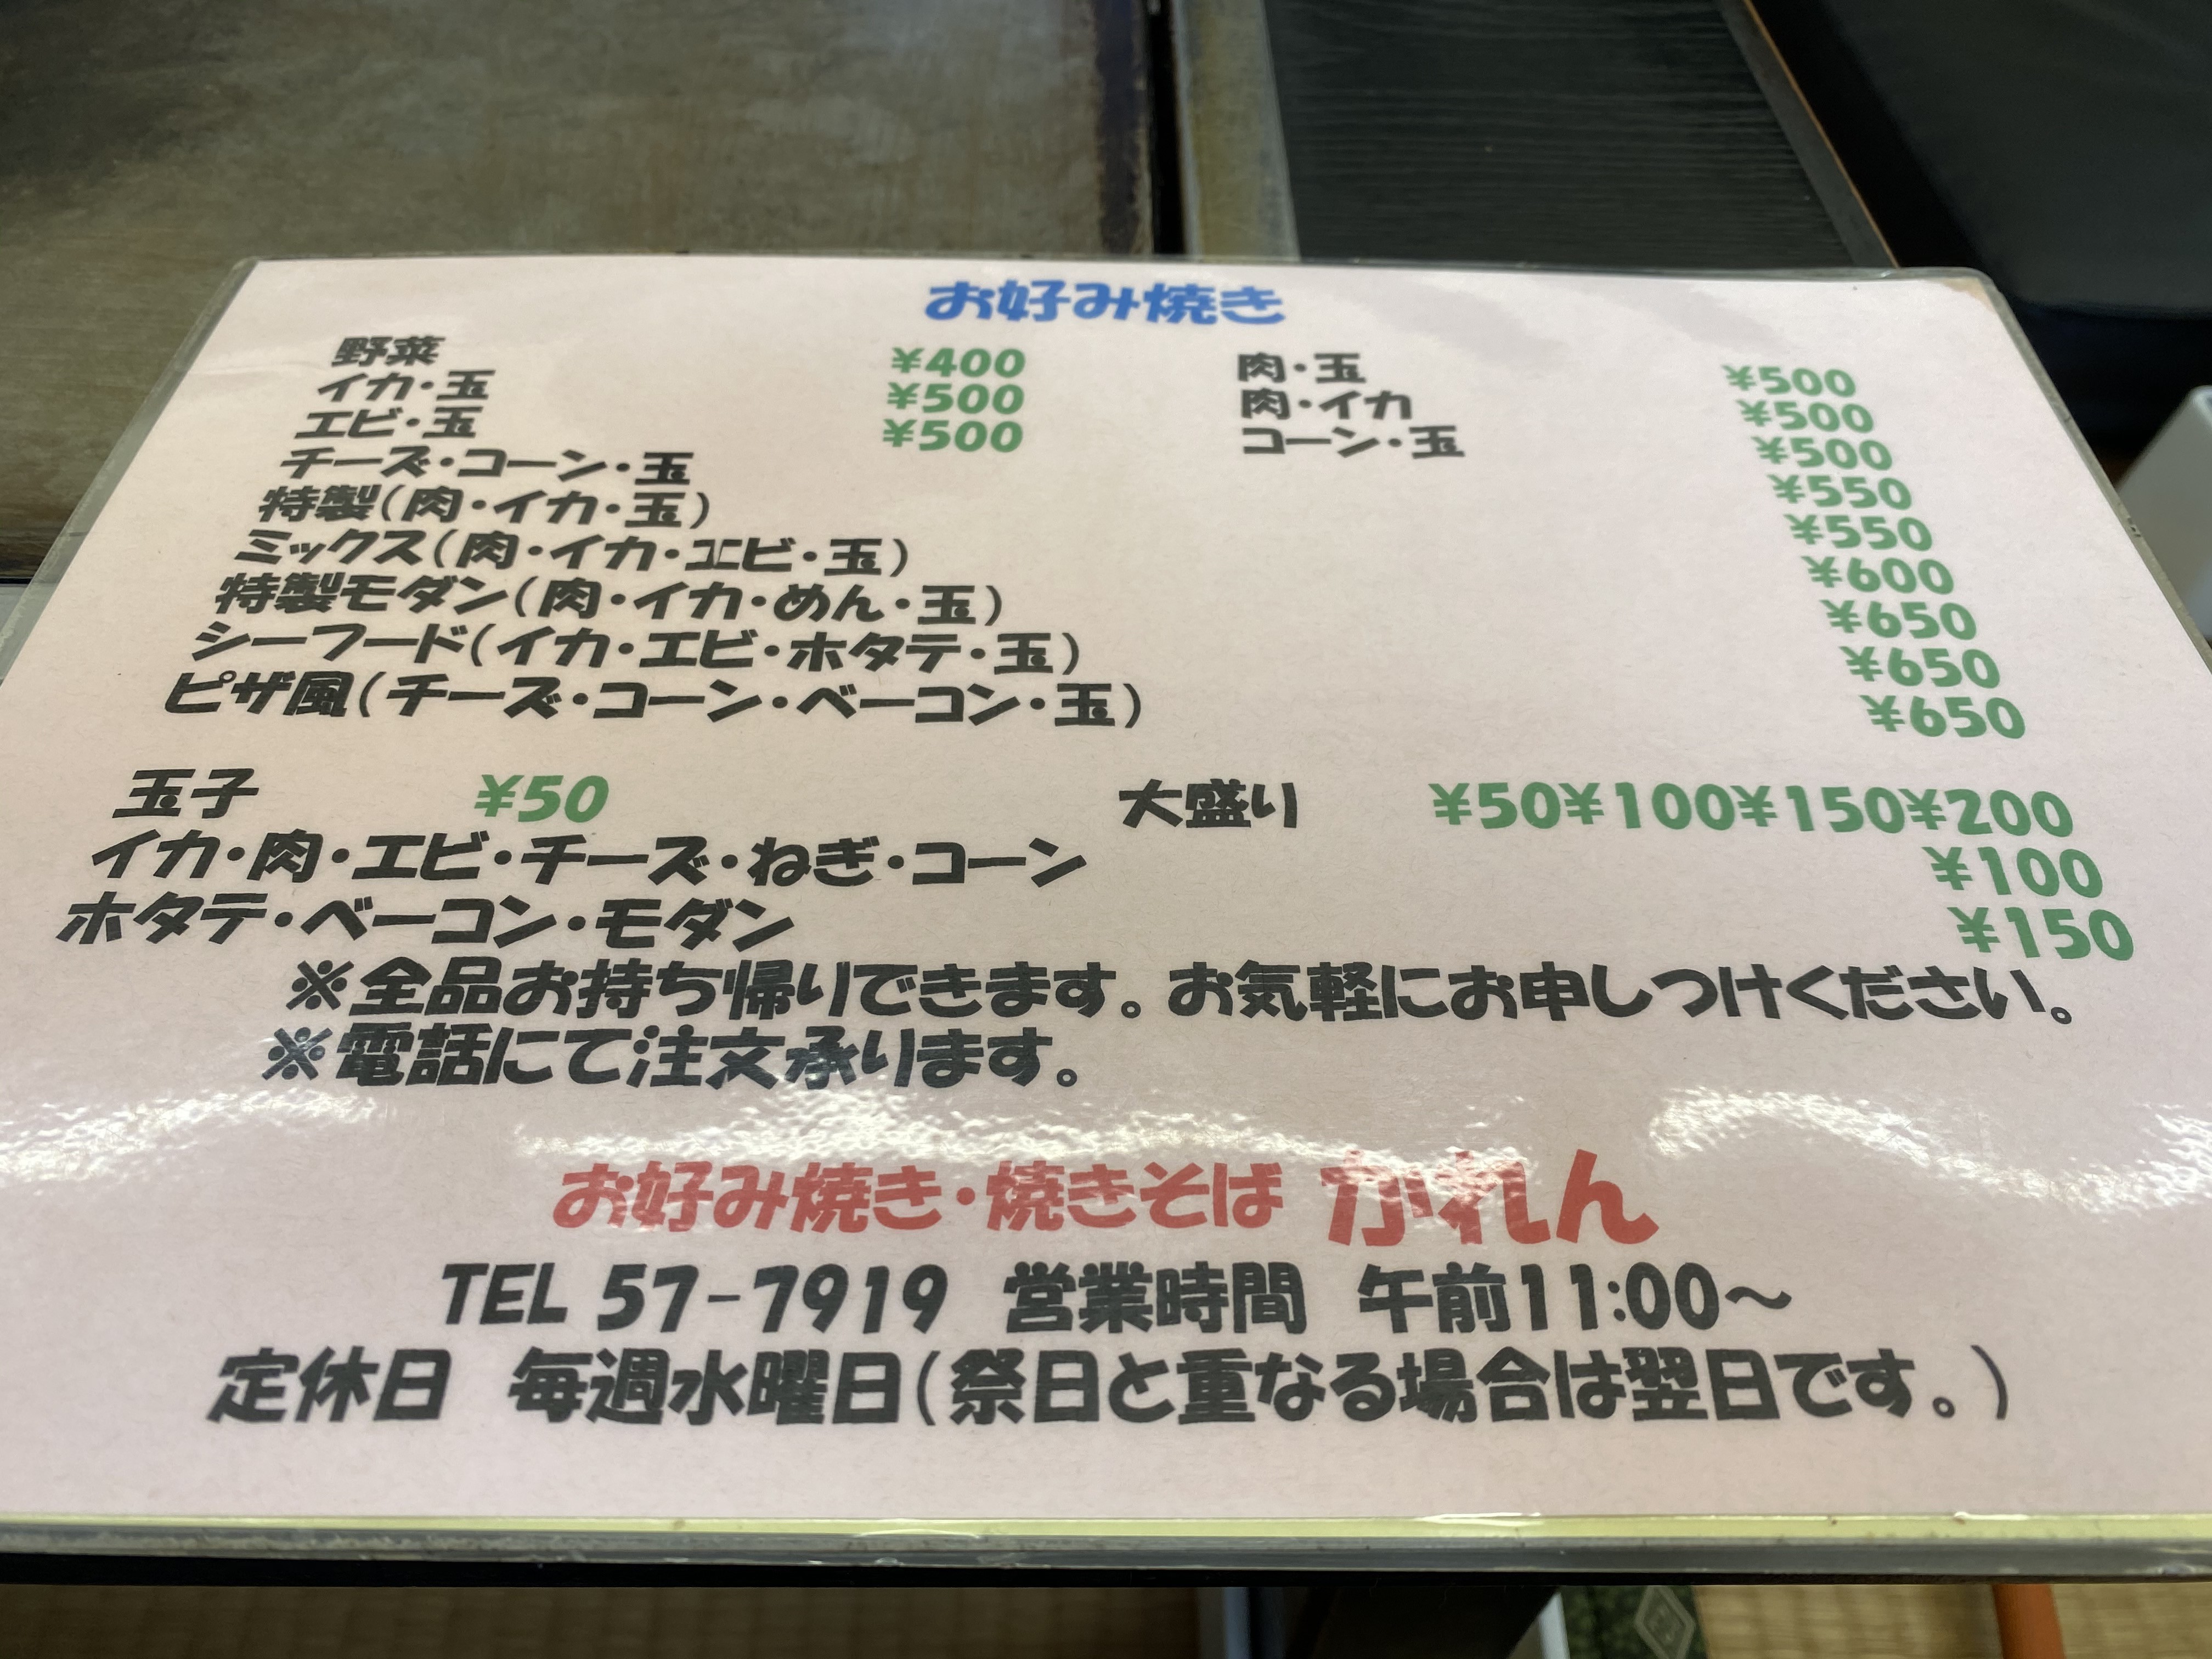 お好み焼き
野菜 ¥400 肉・玉 ¥500
イカ・玉 ¥500 肉・イカ ¥500
エビ・玉 ¥500 コーン・玉 ¥500
チーズ・コーン・玉 ¥550
特製(肉・イカ・玉) ¥550
ミックス(肉・イカ・エビ・玉) ¥600
特製モダン(肉・イカ・めん・玉) ¥650
シーフード(イカ・エビ・ホタテ・玉) ¥650
ピザ風(チーズ・コーン・ベーコン・玉) ¥650
玉子 ¥50 大盛り ¥50¥100¥150¥200
イカ・肉・エビ・チーズ・ねぎ・コーン ¥100
ホタテ・ベーコン・モダン ¥150
※全品お持ち帰りできます。お気軽にお申しつけください。
※電話にて注文承ります。
お好み焼き・焼きそば かれん
TEL 57-7919 営業時間 午前11:00～
定休日 毎週水曜日(祭日と重なる場合は翌日です。)